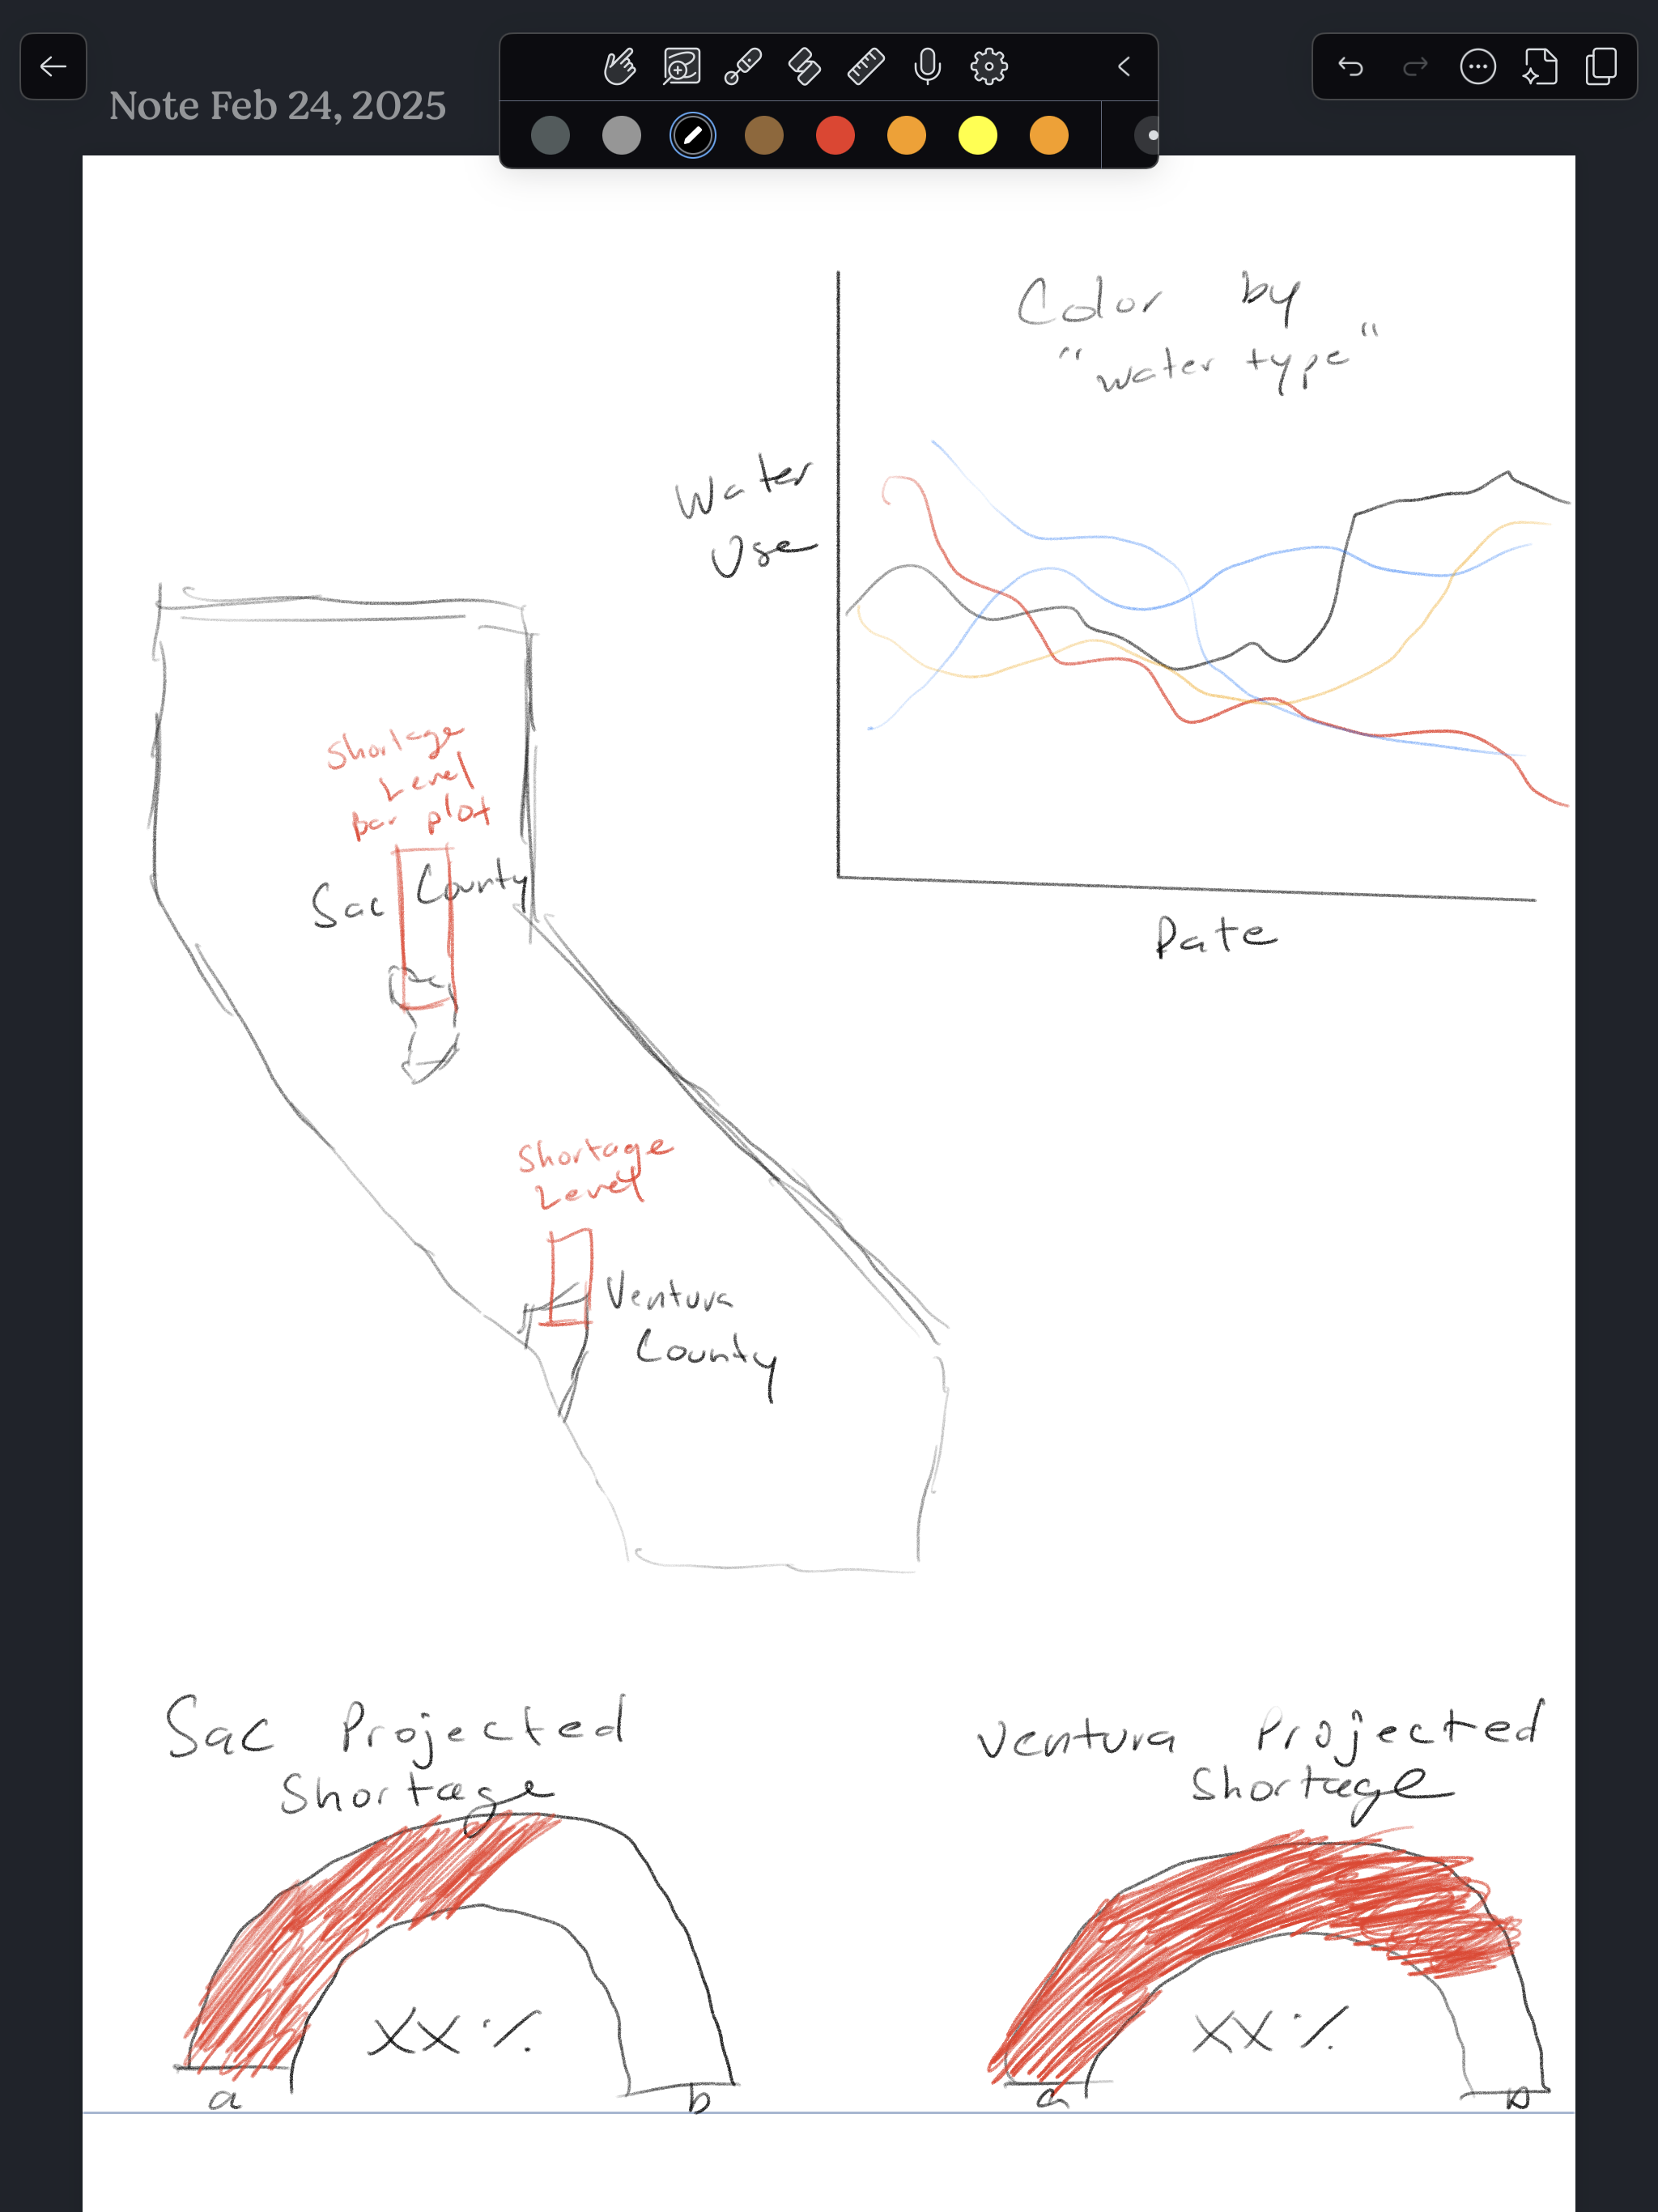 Note Feb 24, 2025
Color by
"water type"
Water
Use
Date
Shortage
Level
Bar plot
Sac County
Shortage
Level
Ventura
County
Sac Projected
Shortage
XX%
a b
Ventura Projected
Shortage
XX%
a b